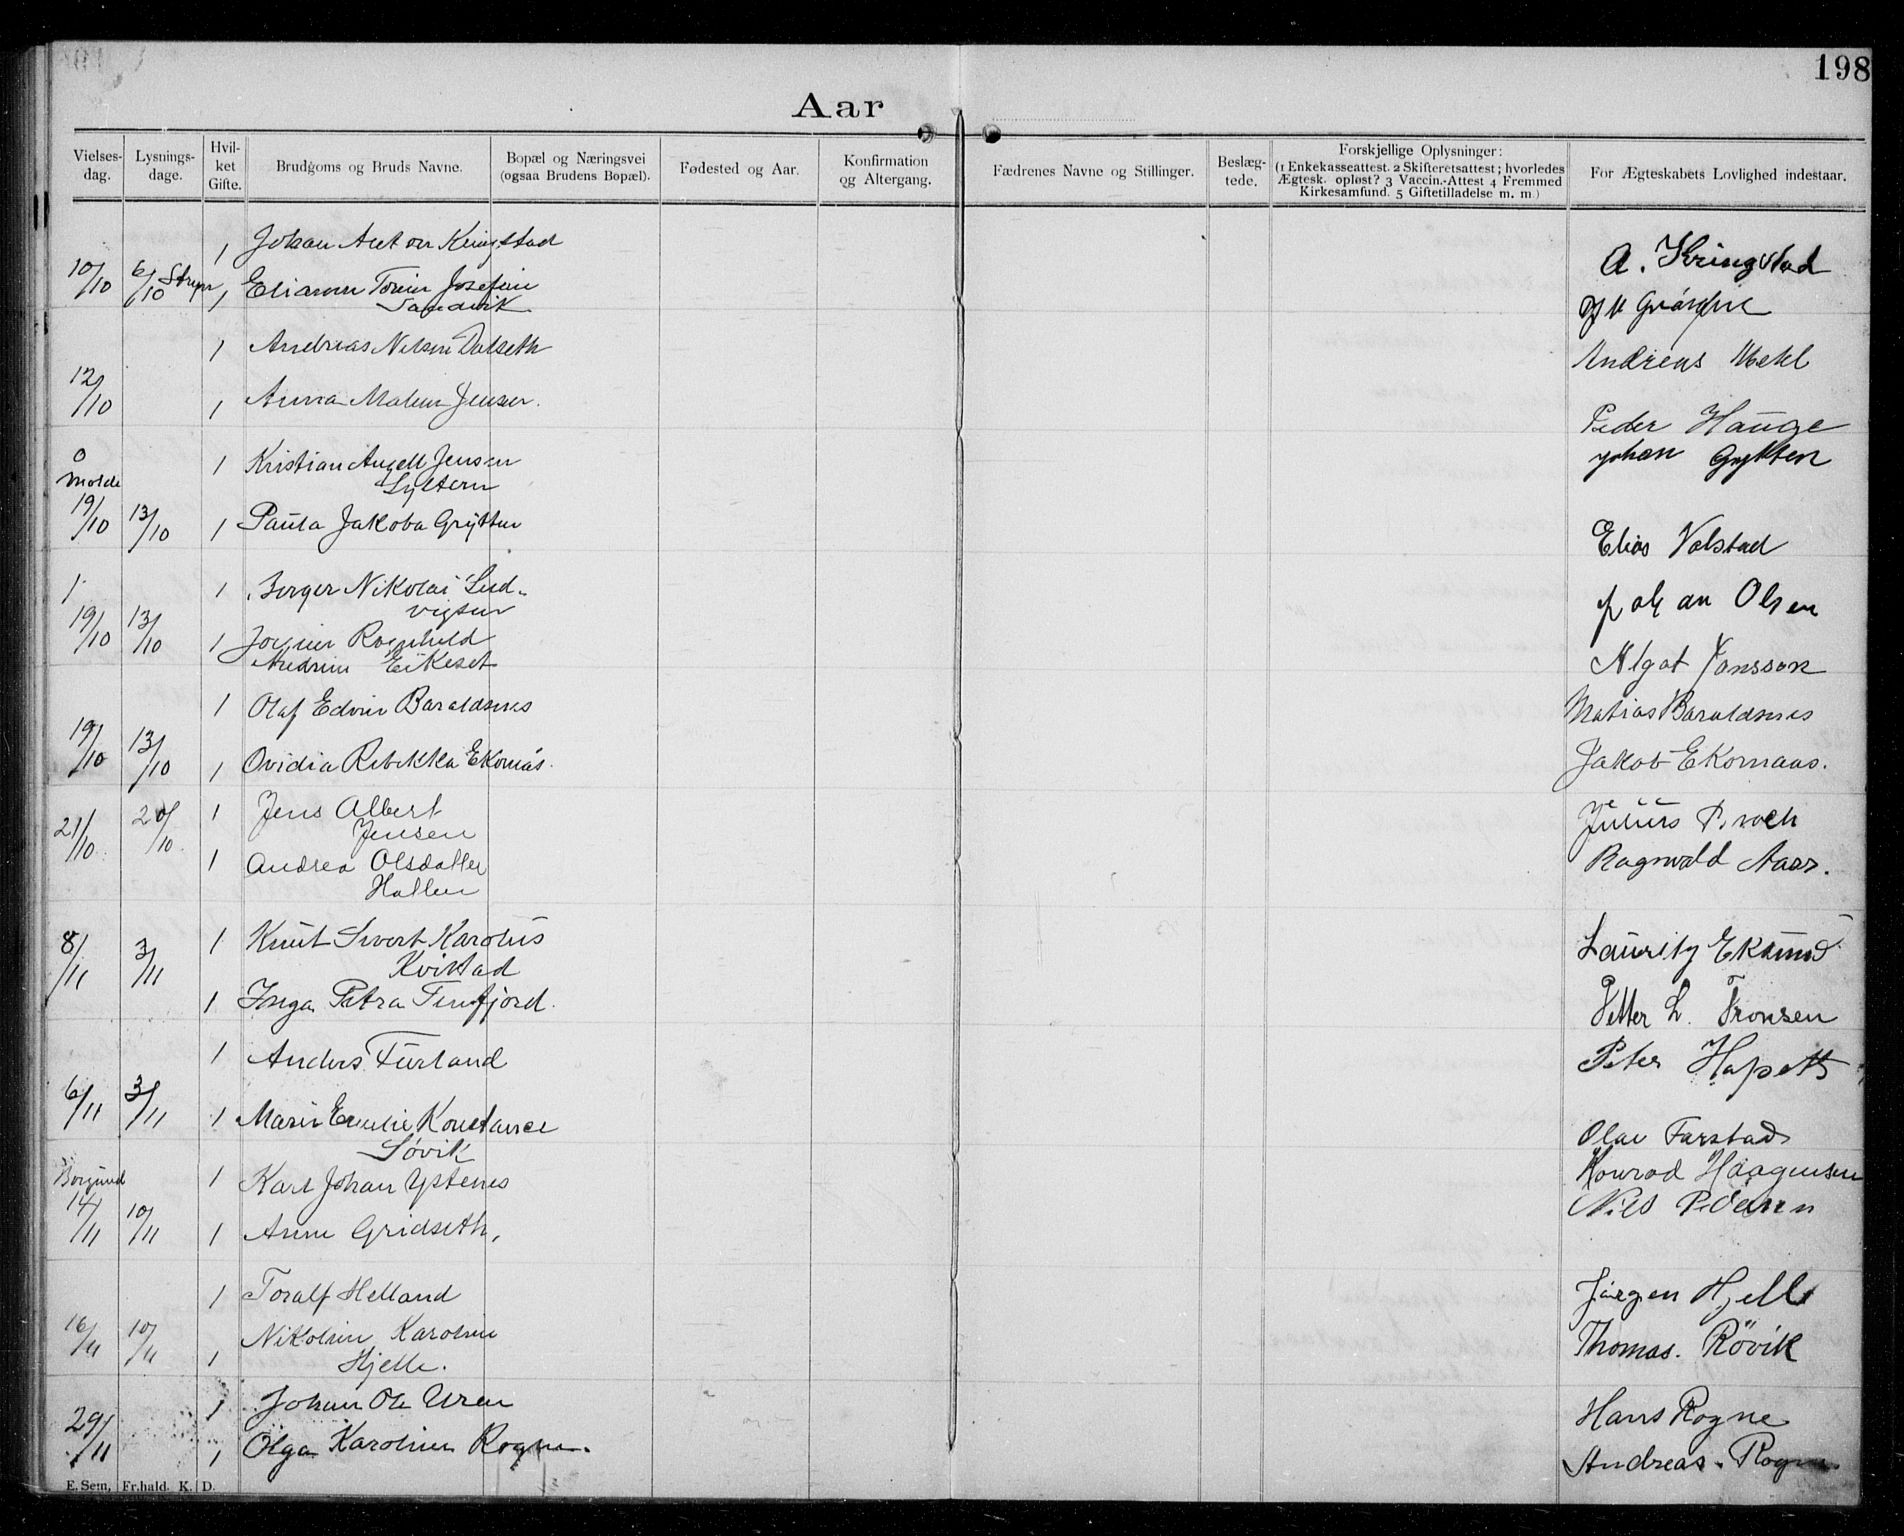 198
Aar
Vielses-
dag.
Lysnings-
dage.
Hvil-
ket
Gifte.
Brudgoms og Bruds Navne.
Bopæl og Næringsvei
(ogsaa Brudens Bopæl).
Fødested og Aar.
Konfirmation
og Altergang.
Fædrenes Navne og Stillinger.
Beslæg-
tede.
Forskjellige Oplysninger:
(1 Enkekasseattest. 2 Skifteretsattest; hvorledes
Ægtesk. opløst? 3 Vaccin.-Attest 4 Fremmed
Kirkesamfund. 5 Giftetilladelse m. m.)
For Ægteskabets Lovlighed indestaar.
1 Johan Anton Kringstad
A. Kringstad
10/10 6/10 1 Josefine
Sandvik
1 Andreas Nilsen Dalseth
Andreas
12/10 1 Anna Malene Jensen.
Peder Hauge
1 Kristian Angell Jensen
Lyltern
Johan Grytten
Molde
19/10 13/10 1 Paula Jakoba Grytten
Elias Valstad
1 Berger Nikolai Lud-
vigsen
Johan Olsen
19/10 13/10 1 Ragnhild
Andrine Eikeset
Algot Jansson
1 Olaf Edvin Baraldsnes
Matias Baraldsnes
19/10 13/10 1 Ovidia Rebekka Ekornås.
Jakob Ekornaas.
21/10 20/10 1 Jens Albert
Jensen
Julius Broch
1 Andrea Olsdatter
Hallen
Ragnvald Aars.
8/11 3/11 1 Knut Sivert Karolus
Kvistad
Lauritz Eksund
1 Inga Petra Finfjord.
Petter L. Tronsen
1 Anders Furland
Peter
6/11 3/11 1 Marie Emelie Konstanse
Søvik
Olav Farstad
Borgund 1 Karl Johan Ystenes
Konrad Haagensen
14/11 10/11 1 Anne Gridseth,
Nils Pedersen
1 Toralf Helland
Jørgen Hjelle
16/11 10/11 1 Nikoline Karoline
Hjelle.
Thomas. Rövik
1 Johan Ole Uren
Hans Rogne
29/11 1 Olga Karoline Rogne.
Andreas. Rogne
E. Sem, Fr.hald. K. D.